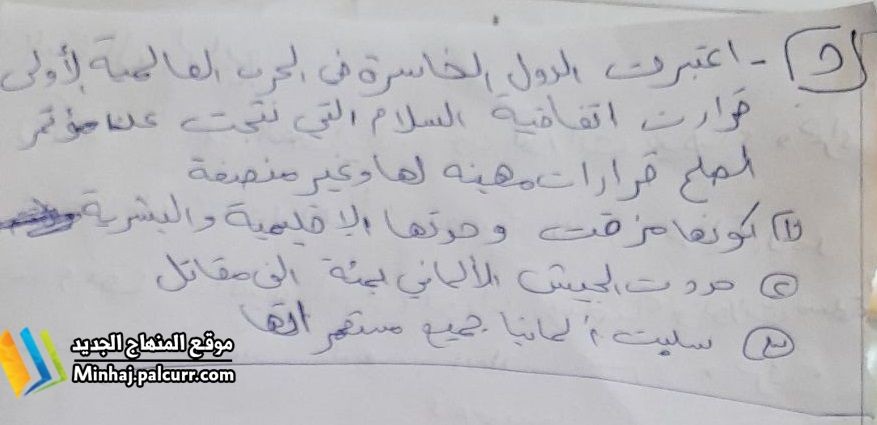 و - اعتبرت الدول الخاسرة في الحرب العالمية الأولى
قرارت اتفاقية السلام التي نتجت عن مؤتمر
الصلح قرارات مهينه لها وغير منصفة
① كونها مزقت وحدتها الاقليمية والبشرية
② حددت الجيش الألماني بمئة الف مقاتل
③ سلبت ألمانيا جميع مستعمراتها
موقع المنهاج الجديد
Minhaj.palcurr.com